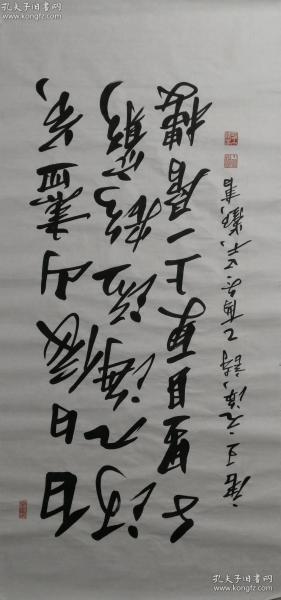 孔夫子旧书网
www.kongfz.com
白日依山盡黄
河入海流欲窮
千里目更上一層樓
唐王之渙詩乙酉冬
書
孔夫子旧书网
www.kongfz.com